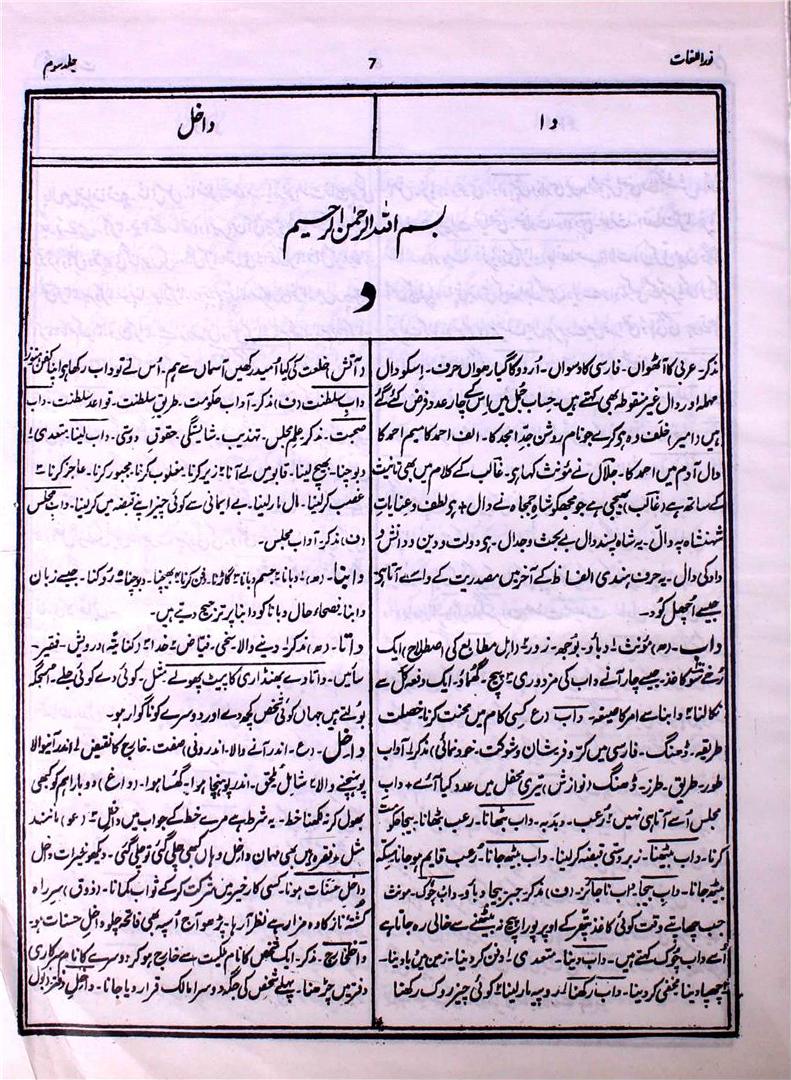 نور اللغات
7
جلد سوم
دا
داخل
بسم اللہ الرحمٰن الرحیم
د
مذکر۔ عربی کا آٹھواں۔ فارسی کا دسواں۔ اُردو کا گیارھواں حرف۔ اسکو دال
مہملہ اور دال غیر منقوطہ بھی کہتے ہیں۔ حساب جُمل میں اس کے چار عدد فرض کئے گئے
ہیں (امیر) خلف وہ ہو کرے جو نام روشن جدِّ امجد کا۔ الف احمد کا میم احمد کا
دال آدم میں احمد کا۔ جلال نے مؤنث کہا ہو۔ غالب کے کلام میں بھی تانیث
کے ساتھ ہے (غالب) بھیجی ہے جو مجھکو شاہ جمجاہ نے دال + ہو لطف و عنایاتِ
شہنشاہ پہ دال۔ یہ شاہ پسند دال بے بحث و جدال۔ ہو دولت و دین و دانش و
داد کی دال۔ یہ حرف ہندی الفاظ کے آخر میں مصدریت کے واسطے آتا ہو
جیسے اُچھل کُود۔
داب۔ (ھ) مؤنث ۱ دباؤ۔ بوجھ۔ زور ۲ (اہل مطابع کی اصطلاح) ایک
رُخے سَو کاغذ۔ جیسے چار آنے داب کی مزدوری ۳ پیچ۔ گھماؤ۔ ایک دفعہ کل سے
نکالنا ۴ دابنا سے امر کا صیغہ۔ داب (ع کسی کام میں محنت کرنا) خصلت
طریقہ۔ ڈھنگ۔ فارسی میں کرّ و فر شان و شوکت۔ خود نمائی) مذکر ۱ آداب
طور۔ طریق۔ طرز۔ ڈھنگ (نوازش) تیری محفل میں عدو کیا آئے + داب
مجلس اُسے آتا ہی نہیں ۲ رُعب۔ دبدبہ۔ داب بٹھانا۔ رعب بٹھانا۔ بیجا حکومت
کرنا۔ داب بیٹھنا۔ زبردستی قبضہ کر لینا۔ داب بیٹھ جانا۔ رُعب قایم ہو جانا۔ سکّہ
بیٹھ جانا۔ داب بیجا۔ داب ناجائز۔ (ف) مذکر۔ جبر۔ بیجا دباؤ۔ داب چُوک۔ مونث
جب چھاپتے وقت کوئی کاغذ پتھر کے اوپر پورا پیچ نہ بیٹھنے سے خالی رہ جاتا ہے
اُسے داب چُوک کہتے ہیں۔ داب دینا۔ متعدی ۱ دفن کر دینا۔ زمین میں دبا دینا۔
چھپا دینا۔ مخفی کر دینا۔ داب رکھنا ۱ روپیہ مار لینا ۲ کوئی چیز روک رکھنا
(آتش) خلعت کی کیا اُمید رکھیں آسماں سے ہم۔ اُس نے تو داب رکھا ہو اپنا کفن ہنوز
داب سلطنت (ف) مذکر۔ آداب حکومت۔ طریق سلطنت۔ قواعد سلطنت۔ داب
صحبت۔ مذکر۔ علم مجلس۔ تہذیب۔ شایستگی۔ حقوق دوستی۔ داب لینا۔ متعدی ۱
دبوچنا۔ بھیچ لینا۔ قابو میں لے آنا ۲ زیر کرنا۔ مغلوب کرنا۔ مجبور کرنا۔ عاجز کرنا ۳
غصب کر لینا۔ مال مار لینا۔ بے ایمانی سے کوئی چیز اپنے قبضہ میں کر لینا۔ داب مجلس
(ف) مذکر۔ آداب مجلس۔
دابنا۔ (ھ) ۱ دبانا ۲ جسم دبانا ۳ گاڑنا۔ دفن کرنا ۴ بھیچنا۔ دبوچنا ۵ روکنا۔ جیسے زبان
دابنا۔ فصحائے حال دبانا کو دابنا پر ترجیح دیتے ہیں۔
داتا۔ (ھ) مذکر ۱ دینے والا۔ سخی۔ فیاض ۲ خدا ۳ (کنایۃً) درویش۔ فقیر۔
سائیں۔ داتا دے بھنڈاری کا پیٹ پھولے۔ مثل۔ کوئی دے کوئی جلے۔ اُسجگہ
بولتے ہیں جہاں کوئی شخص کچھ دے اور دوسرے کو ناگوار ہو۔
داخل۔ (ع۔ اندر آنے والا۔ اندرونی) صفت۔ خارج کا نقیض ۱ اندر آنیوالا
پہونچنے والا ۲ شامل۔ ملحق۔ اندر پہنچا ہوا۔ گھسا ہوا۔ (داغ) دوبارا ہم کو کبھی
بھول کر نہ لکھنا خط۔ یہ شرط ہے مرے خط کے جواب میں داخل ۳ (عو) مانند
مثل و نقرہ ہیں بھی مہمان داخل وہاں کبھی چلی گئی تو چلی گئی۔ دیکھو خیرات داخل
داخل حسنات ہونا۔ کسی کار خیر میں شرکت کر کے ثواب کمانا۔ (ذوق) سر راہ
کشتۂ ناز کا وہ مزار ہے نظر آ رہا۔ پڑھو آج اُسپہ بھی فاتحہ چلو داخل حسنات ہو۔
داخل خارج۔ مذکر۔ ایک شخص کا نام ملکیت سے خارج ہو کر دوسرے کا نام سرکاری
دفتر میں چڑھنا۔ پہلے شخص کی جگہ دوسرا مالک قرار دیا جانا۔ داخل دفتر